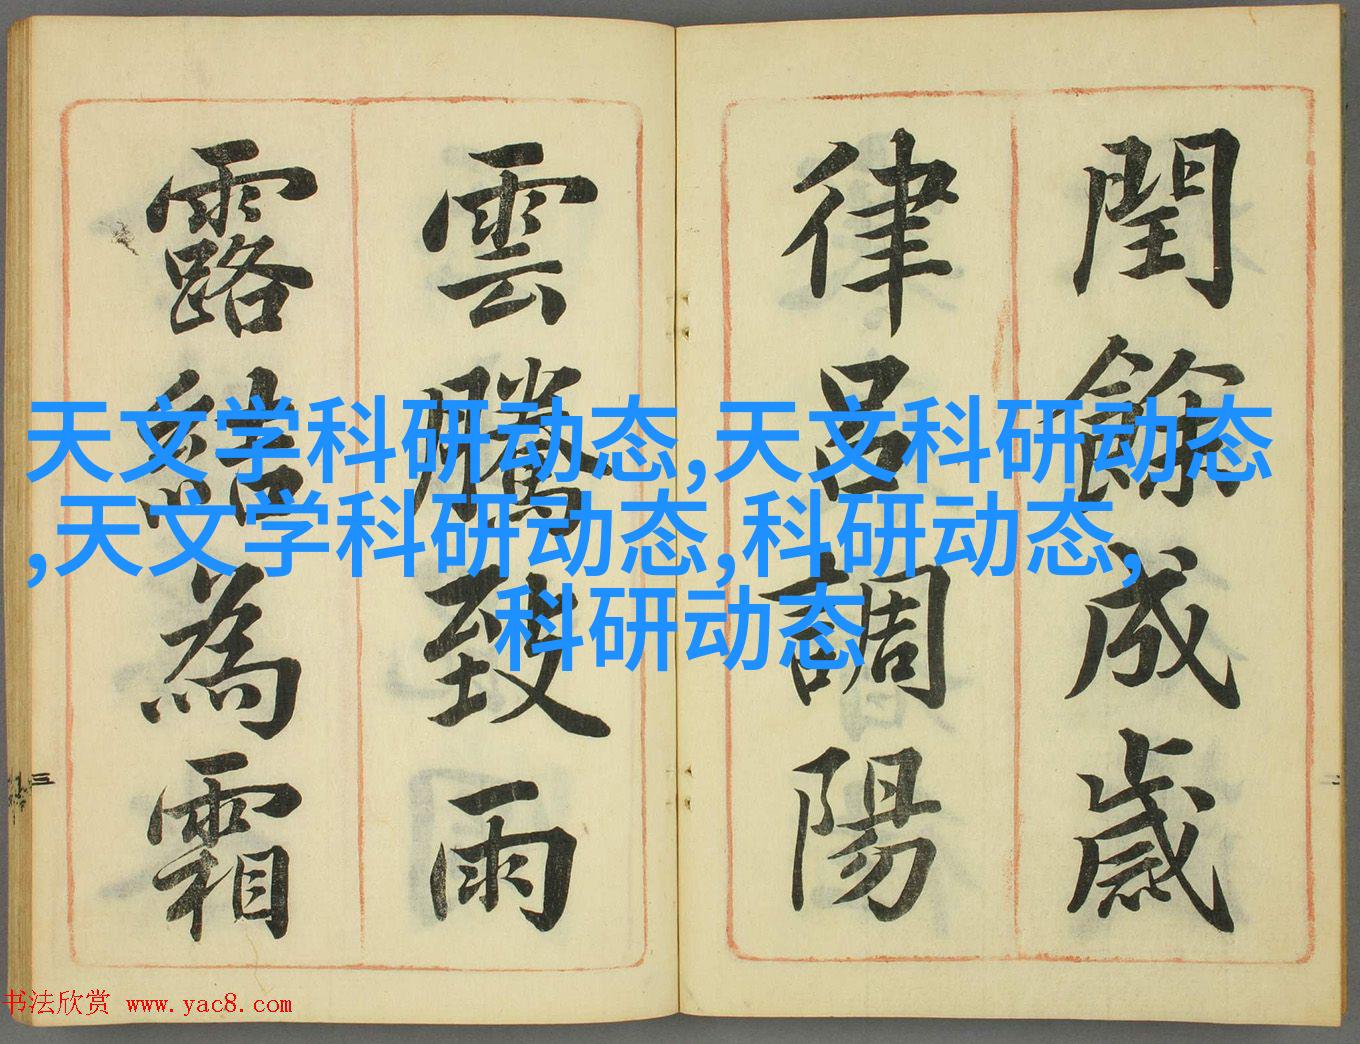 閏餘成歲
律呂調陽
雲騰致雨
露結為霜
天文学科研动态,天文科研动态
,天文学科研动态,科研动态,
科研动态
三
二
书法欣赏 www.yac8.com